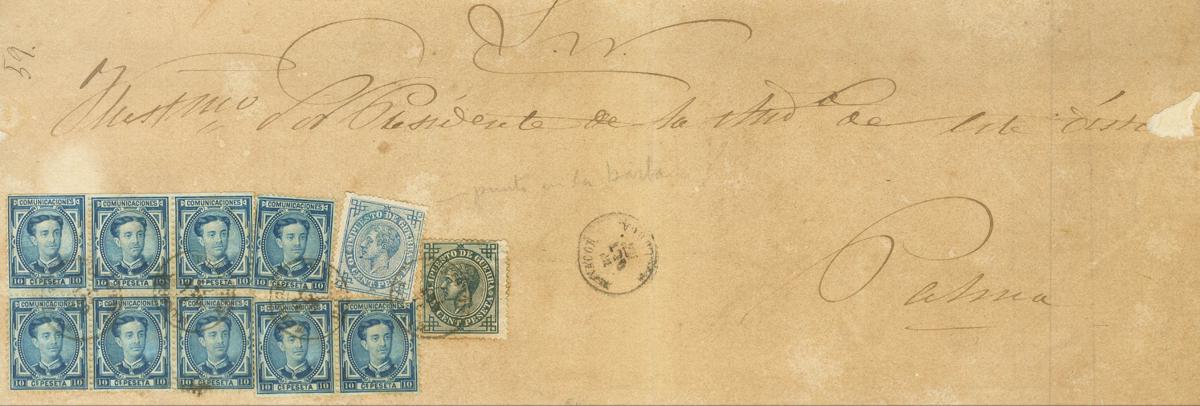 59.
S. N.
Illustmo Sor Presidente de la Aud.a de este dist
punto en la barba
COMUNICACIONES COMUNICACIONES COMUNICACIONES COMUNICACIONES
10 CS PESETA 10 10 CS PESETA 10 10 CS PESETA 10 10 CS PESETA 10
IMPUESTO DE GUERRA
5 CENT PESETA
IMPUESTO DE GUERRA
CENT PESETA
MANACOR
Palma
COMUNICACIONES COMUNICACIONES COMUNICACIONES COMUNICACIONES COMUNICACIONES
10 CS PESETA 10 10 CS PESETA 10 10 CS PESETA 10 10 CS PESETA 10 10 CS PESETA 10